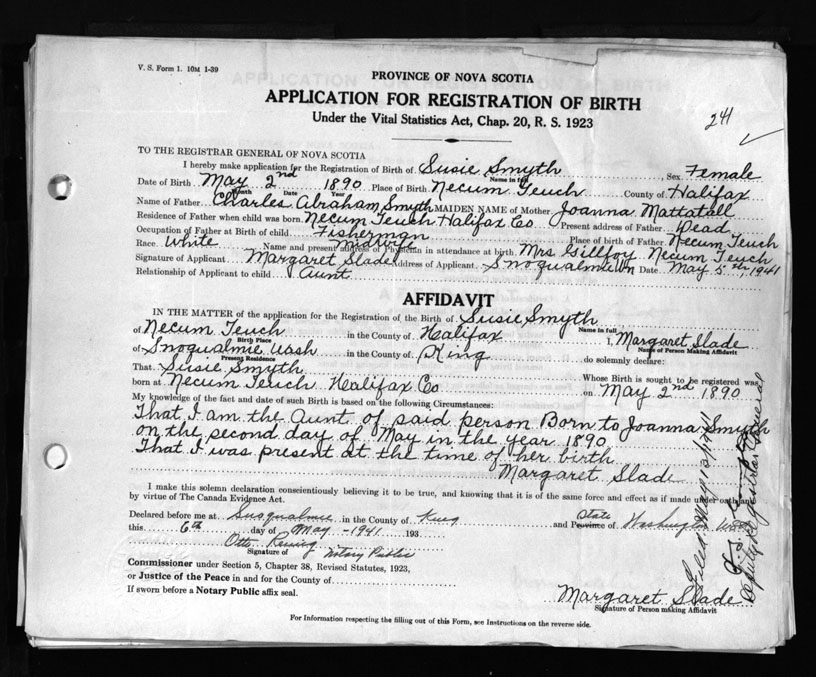 V. S. Form 1. 10M 1-39
PROVINCE OF NOVA SCOTIA
APPLICATION FOR REGISTRATION OF BIRTH
Under the Vital Statistics Act, Chap. 20, R. S. 1923
241
TO THE REGISTRAR GENERAL OF NOVA SCOTIA
I hereby make application for the Registration of Birth of Susie Smyth Sex Female
Name in full
Date of Birth May 2nd 1890 Place of Birth Necum Teuch County of Halifax
Month Date Year
Name of Father Charles Abraham Smyth MAIDEN NAME of Mother Joanna Mattatall
Residence of Father when child was born Necum Teuch Halifax Co Present address of Father Dead
Occupation of Father at Birth of child Fisherman Place of birth of Father Necum Teuch
Race White Name and present address of Physician in attendance at birth Midwife Mrs Gillfoy Necum Teuch
Signature of Applicant Margaret Slade Address of Applicant Snoqualmie Wn Date May 5th, 1941
Relationship of Applicant to child Aunt
AFFIDAVIT
IN THE MATTER of the application for the Registration of the Birth of Susie Smyth
Name in full
of Necum Teuch in the County of Halifax I, Margaret Slade
Birth Place Name of Person Making Affidavit
of Snoqualmie Wash in the County of King do solemnly declare:
Present Residence
That Susie Smyth Whose Birth is sought to be registered was
born at Necum Teuch Halifax Co on May 2nd 1890
My knowledge of the fact and date of such Birth is based on the following Circumstances:
That I am the Aunt of said person Born to Joanna Smyth
on the second day of May in the year 1890
That I was present at the time of her birth
Margaret Slade
I make this solemn declaration conscientiously believing it to be true, and knowing that it is of the same force and effect as if made under oath and
by virtue of The Canada Evidence Act.
Declared before me at Snoqualmie in the County of King and Province of State Washington
this 6th day of May - 1941 193
Otto
Signature of Notary Public
Commissioner under Section 5, Chapter 38, Revised Statutes, 1923,
or Justice of the Peace in and for the County of
If sworn before a Notary Public affix seal.
Margaret Slade
Signature of Person making Affidavit
For Information respecting the filling out of this Form, see Instructions on the reverse side.
Filed May
Deputy Registrar General